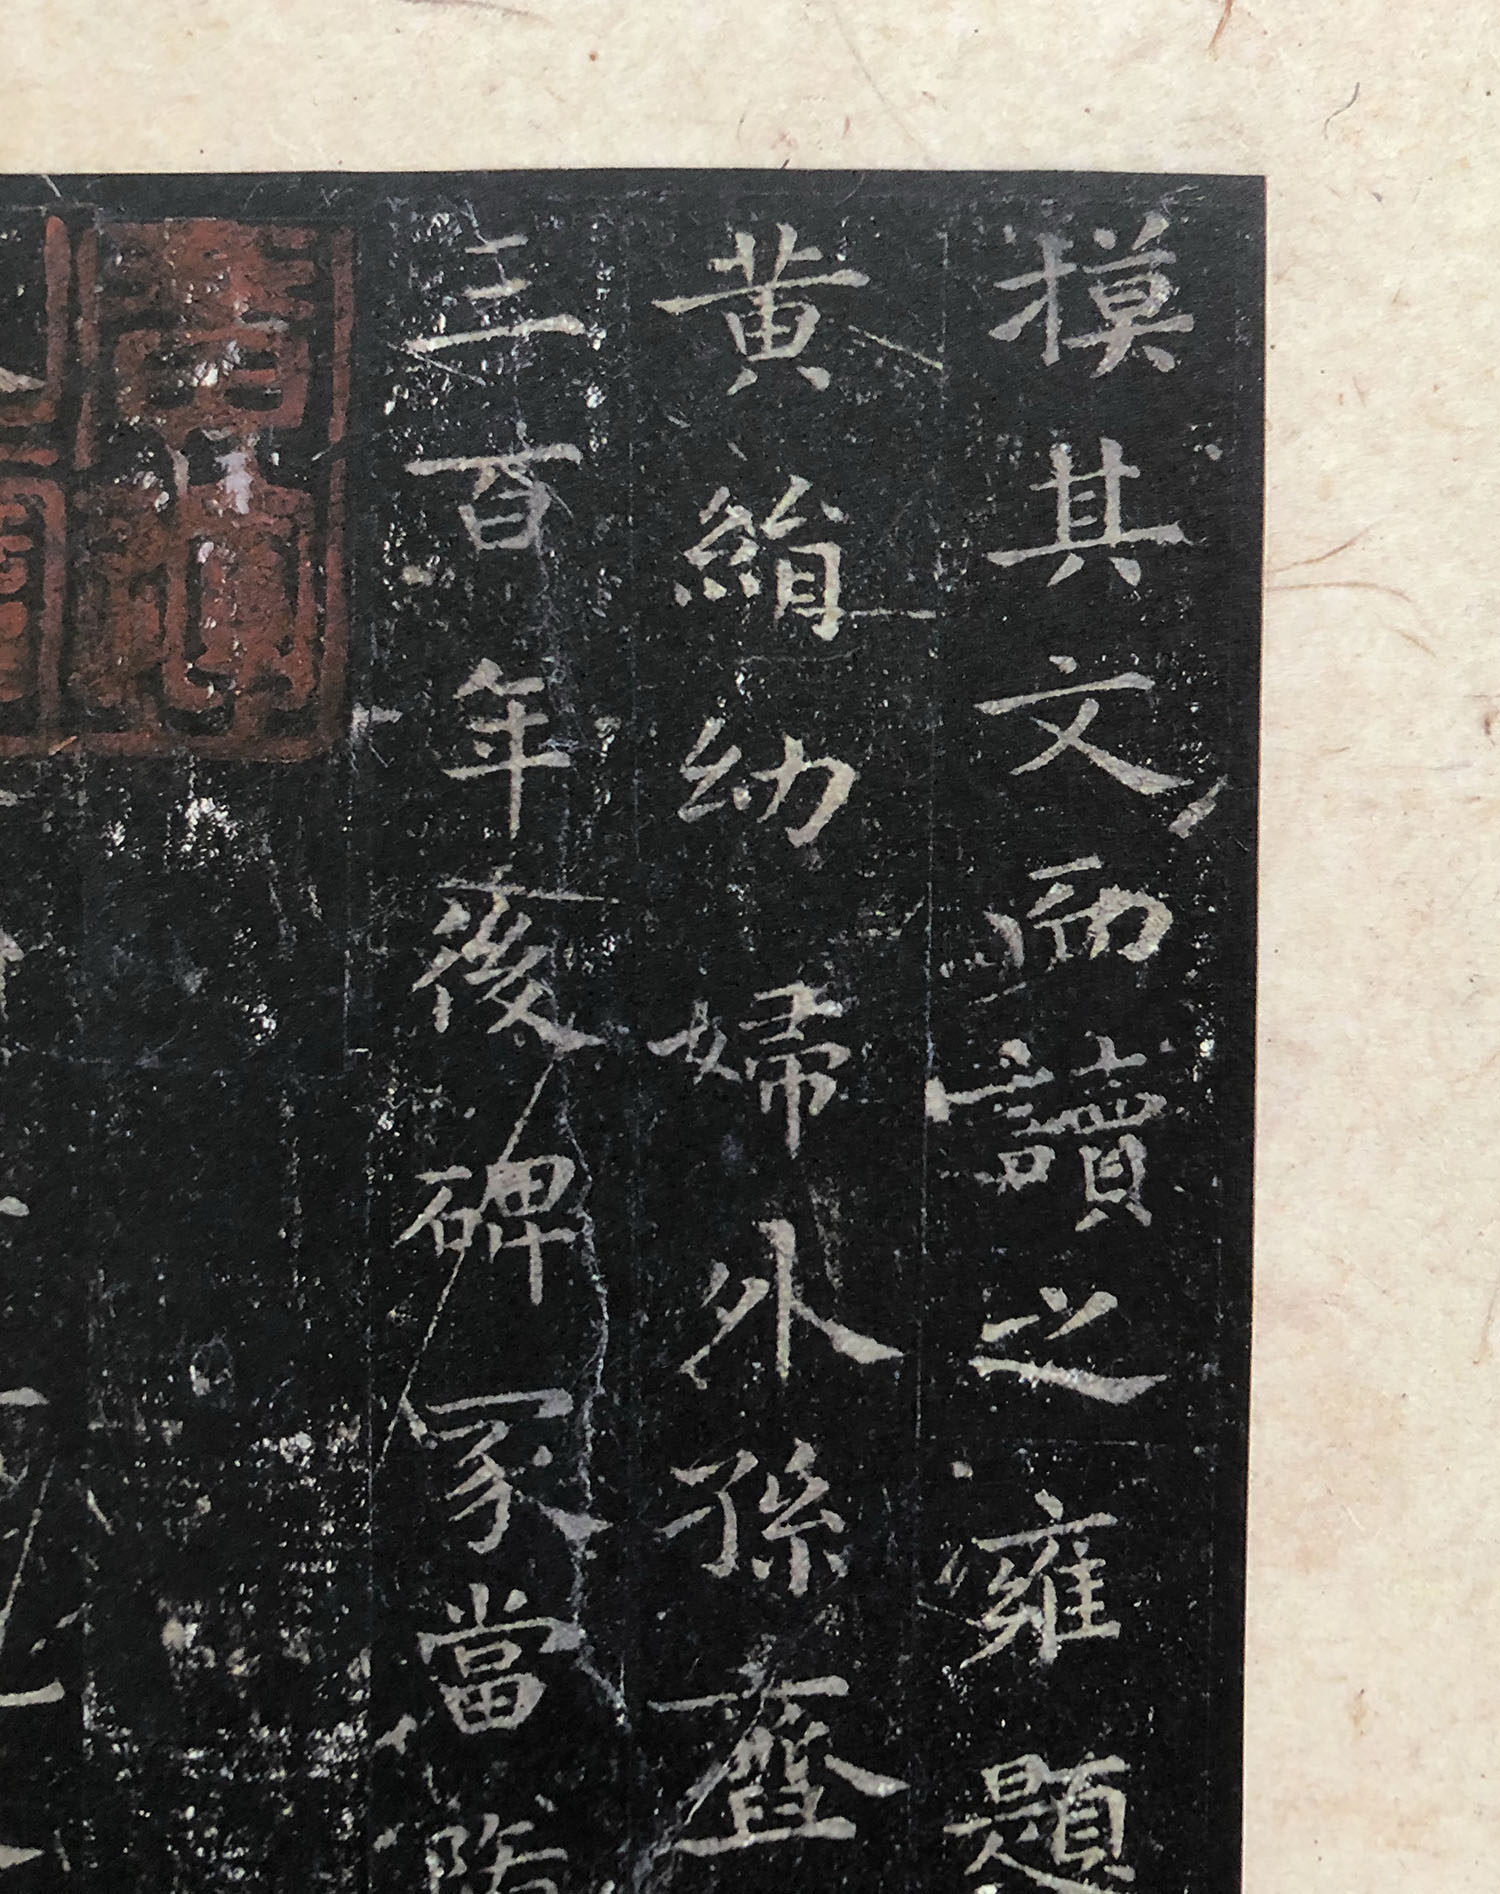 摸其文而讀之雍題
黄絹幼婦外孫齏
三百年後碑冢當